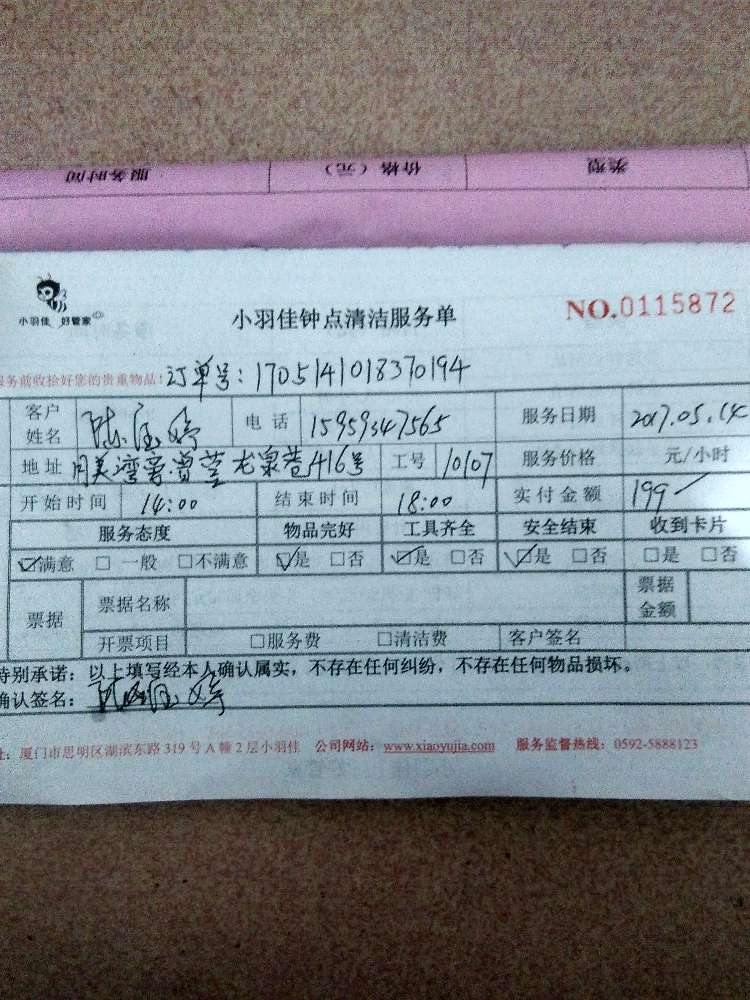 服务时间 价格（元） 类型
小羽佳 好管家
小羽佳钟点清洁服务单 NO.0115872
服务前收拾好您的贵重物品！订单号：1705141018370194
客户姓名 电话 15959347565 服务日期 2017.05.14
地址 龙泉巷416号 工号 10107 服务价格 元/小时
开始时间 14:00 结束时间 18:00 实付金额 199
服务态度 物品完好 工具齐全 安全结束 收到卡片
☑满意 □ 一般 □不满意 ☑是 □否 ☑是 □否 ☑是 □否 □是 □否
票据 票据名称 票据金额
开票项目 □服务费 □清洁费 客户签名
特别承诺：以上填写经本人确认属实，不存在任何纠纷，不存在任何物品损坏。
确认签名：
址：厦门市思明区湖滨东路319号A幢2层小羽佳 公司网站：www.xiaoyujia.com 服务监督热线：0592-5888123